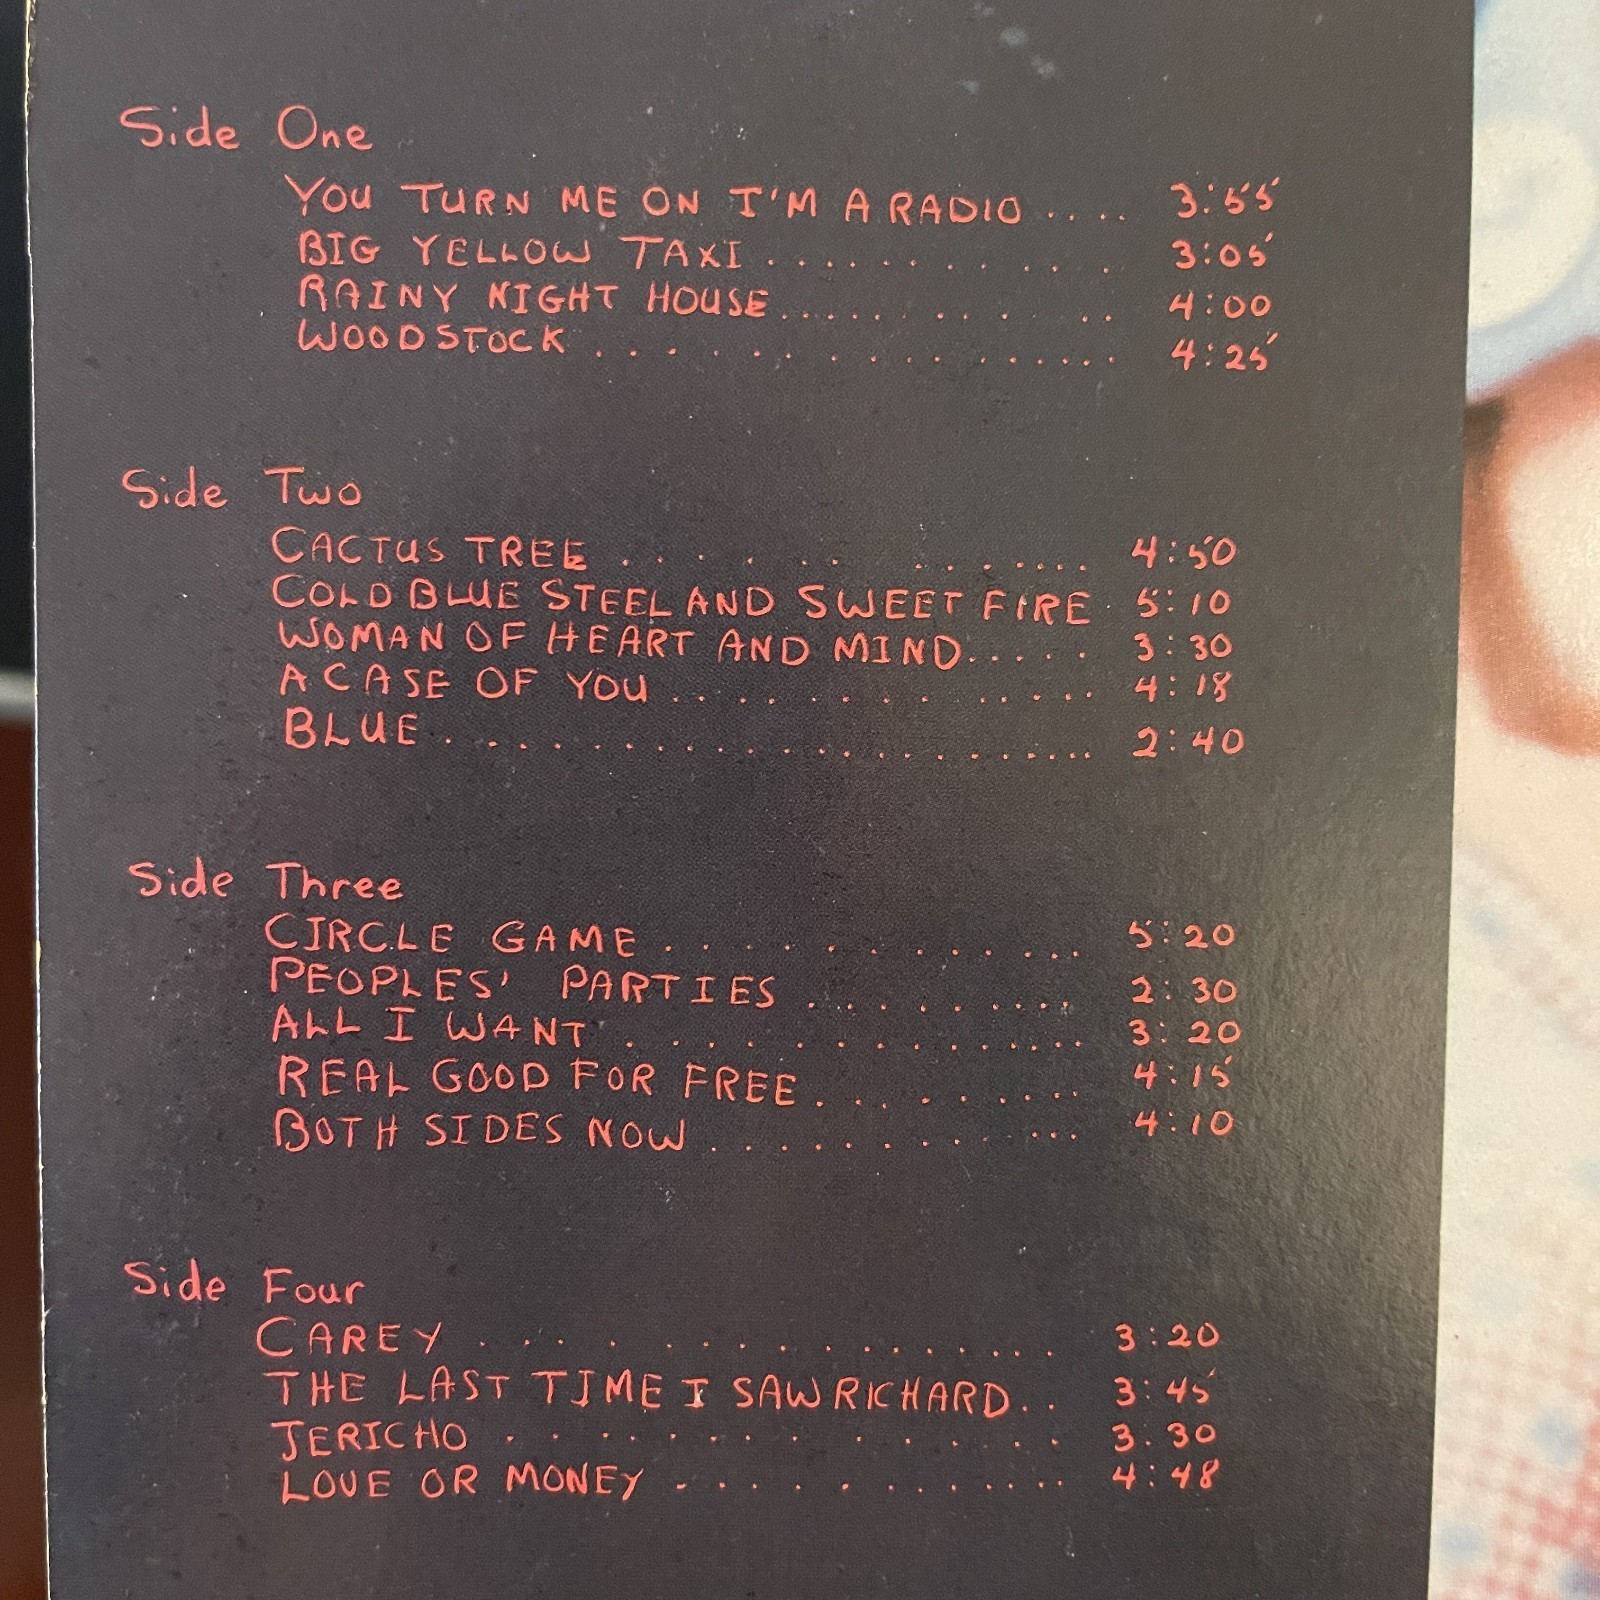 Side One
YOU TURN ME ON I'M A RADIO .... 3:55
BIG YELLOW TAXI ............ 3:05
RAINY NIGHT HOUSE ............ 4:00
WOODSTOCK ................. 4:25
Side Two
CACTUS TREE ............. 4:50
COLD BLUE STEEL AND SWEET FIRE . 5:10
WOMAN OF HEART AND MIND ..... 3:30
A CASE OF YOU ............. 4:18
BLUE ..................... 2:40
Side Three
CIRCLE GAME ............. 5:20
PEOPLES' PARTIES .......... 2:30
ALL I WANT ............... 3:20
REAL GOOD FOR FREE ......... 4:15
BOTH SIDES NOW ............ 4:10
Side Four
CAREY .............. 3:20
THE LAST TIME I SAW RICHARD .. 3:45
JERICHO .............. 3:30
LOVE OR MONEY ............ 4:48